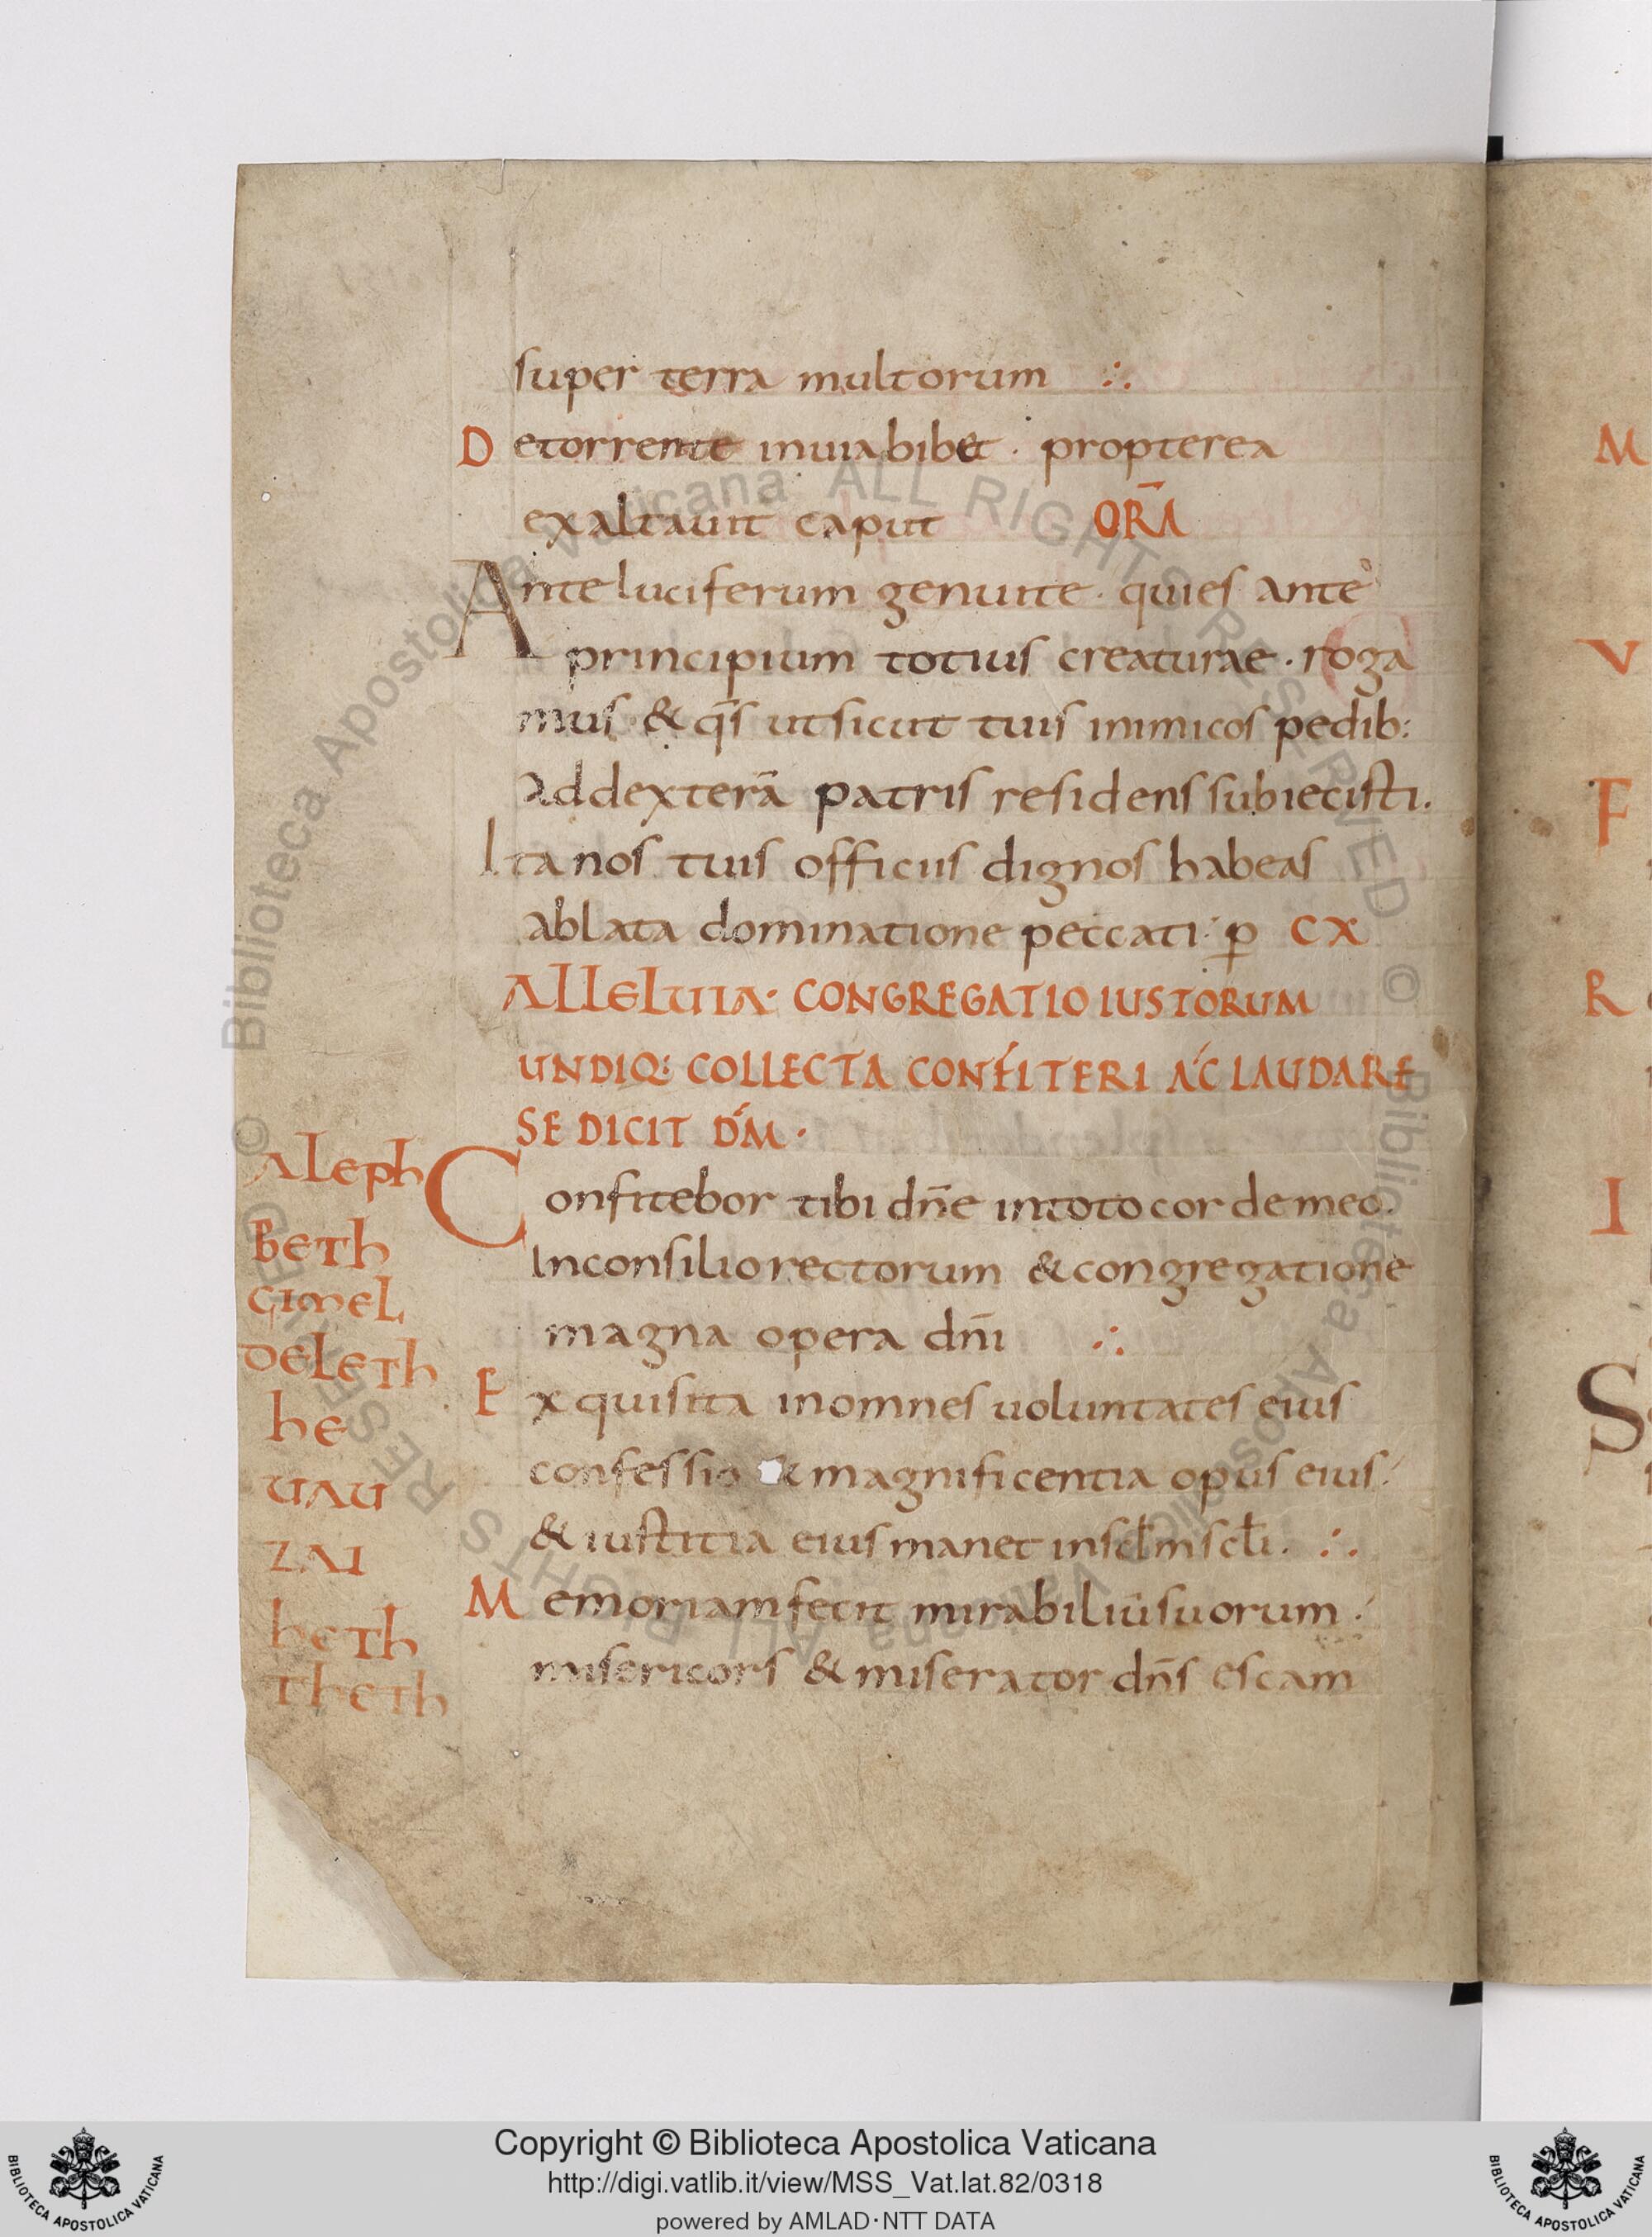 super terra multorum ∴
D etorrente inuiabibet · propterea
exaltauit caput ORA̅
Ante luciferum genuite · quies ante
principium totius creaturae · roga
mus & q̄s utsicut tuis inimicos pedib:
addexterā patris residens subiecisti.
Ita nos tuis officiis dignos habeas
ablata dominatione peccati p̱ CX
ALLELUIA· CONGREGATIO IUSTORUM
UNDIQ: COLLECTA CONFITERI AC LAUDARE
SE DICIT DM̄ ·
Confitebor tibi dn̄e intoto cor de meo.
Inconsilio rectorum & congregatione
magna opera dn̄i ∴
E xquisita inomnes uoluntates eius
confessio & magnificentia opus eius
& iustitia eius manet inscl̄m scl̄i. ∴
M emoriam fecit mirabiliū suorum
misericors & miserator dn̄s escam
ALEPH
BETH
GIMEL
DELETH
HE
UAU
ZAI
HETH
THETH
M
V
F
R
I
S
© Biblioteca Apostolica Vaticana ALL RIGHTS RESERVED © Biblioteca Apostolica Vaticana ALL RIGHTS RESERVED
Copyright © Biblioteca Apostolica Vaticana
http://digi.vatlib.it/view/MSS_Vat.lat.82/0318
powered by AMLAD·NTT DATA
BIBLIOTECA APOSTOLICA VATICANA
BIBLIOTECA APOSTOLICA VATICANA